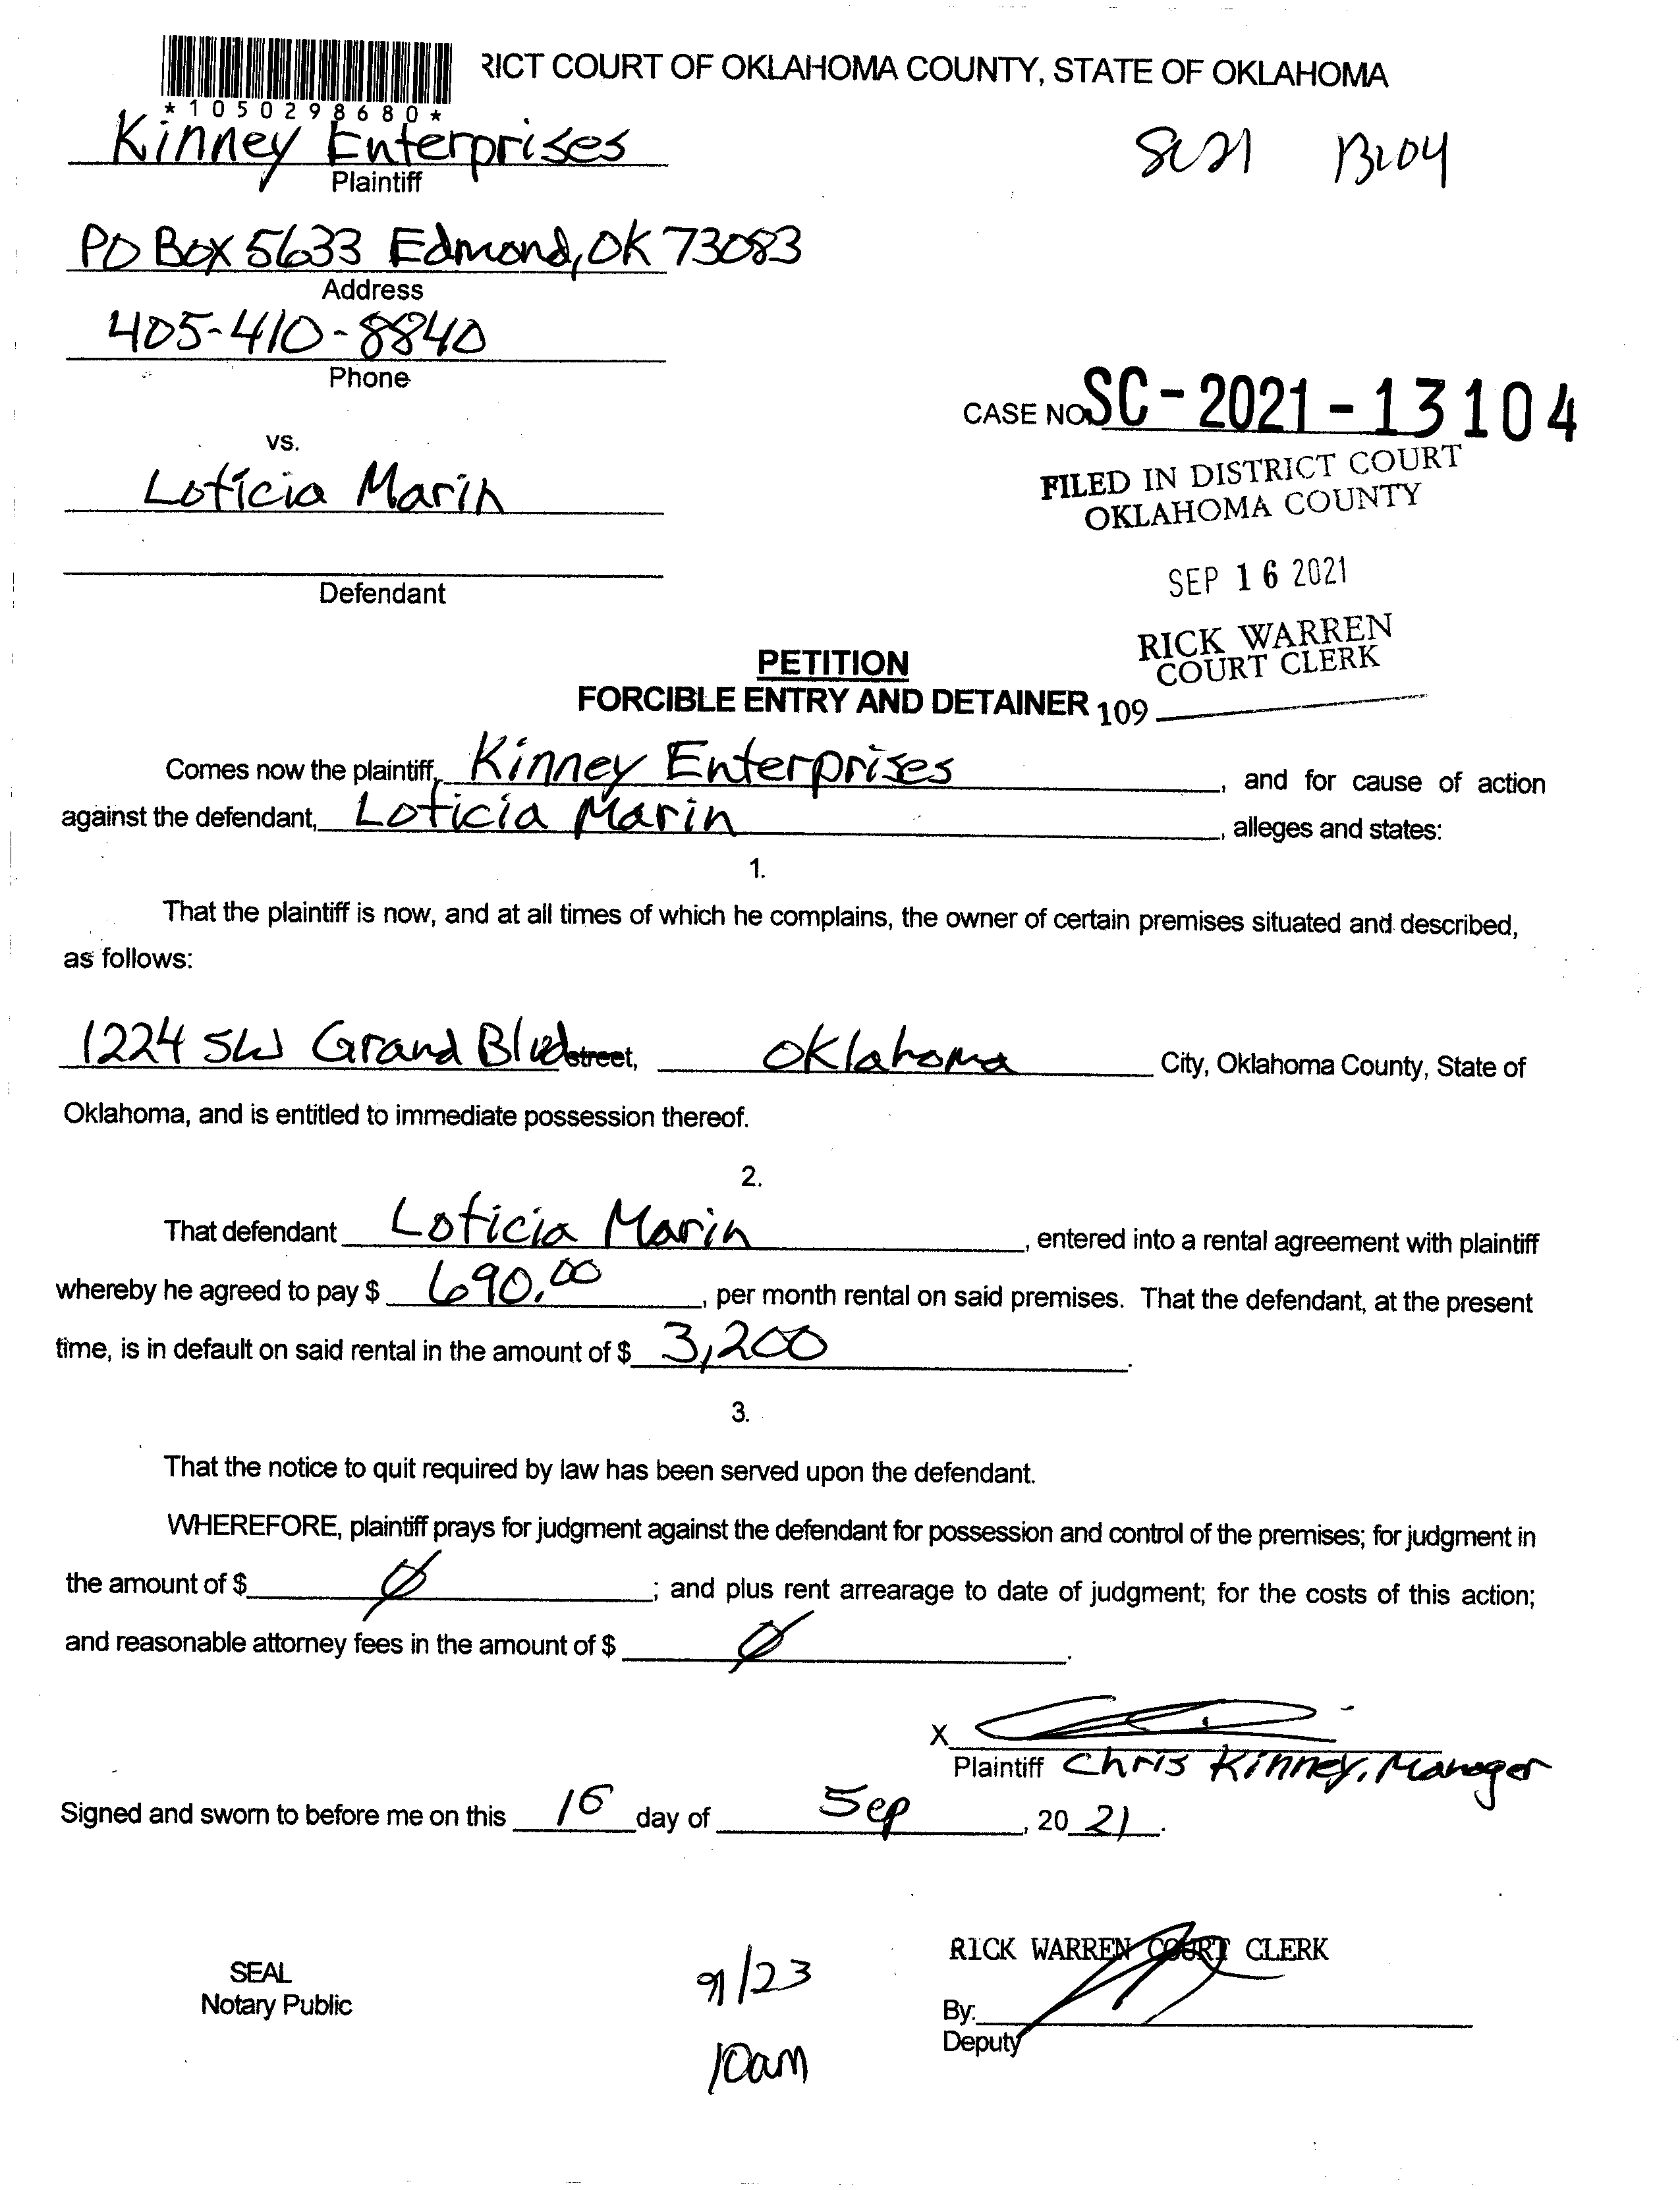 RICT COURT OF OKLAHOMA COUNTY, STATE OF OKLAHOMA
*1050298680*
Kinney Enterprises
Plaintiff
SC21 13104
PO Box 5633 Edmond, OK 73083
Address
405-410-8840
Phone
CASE NO. SC-2021-13104
vs.
FILED IN DISTRICT COURT
OKLAHOMA COUNTY
Loticia Marin
SEP 16 2021
Defendant
RICK WARREN
COURT CLERK
PETITION
FORCIBLE ENTRY AND DETAINER
109
Comes now the plaintiff, Kinney Enterprises, and for cause of action
against the defendant, Loticia Marin, alleges and states:
1.
That the plaintiff is now, and at all times of which he complains, the owner of certain premises situated and described,
as follows:
1224 SW Grand Blvd street, Oklahoma City, Oklahoma County, State of
Oklahoma, and is entitled to immediate possession thereof.
2.
That defendant Loticia Marin, entered into a rental agreement with plaintiff
whereby he agreed to pay $ 690.00, per month rental on said premises. That the defendant, at the present
time, is in default on said rental in the amount of $ 3,200.
3.
That the notice to quit required by law has been served upon the defendant.
WHEREFORE, plaintiff prays for judgment against the defendant for possession and control of the premises; for judgment in
the amount of $ Ø; and plus rent arrearage to date of judgment; for the costs of this action;
and reasonable attorney fees in the amount of $ Ø.
X
Plaintiff Chris Kinney, Manager
Signed and sworn to before me on this 16 day of Sep, 20 21.
RICK WARREN COURT CLERK
SEAL
Notary Public
9/23
By:
Deputy
10am